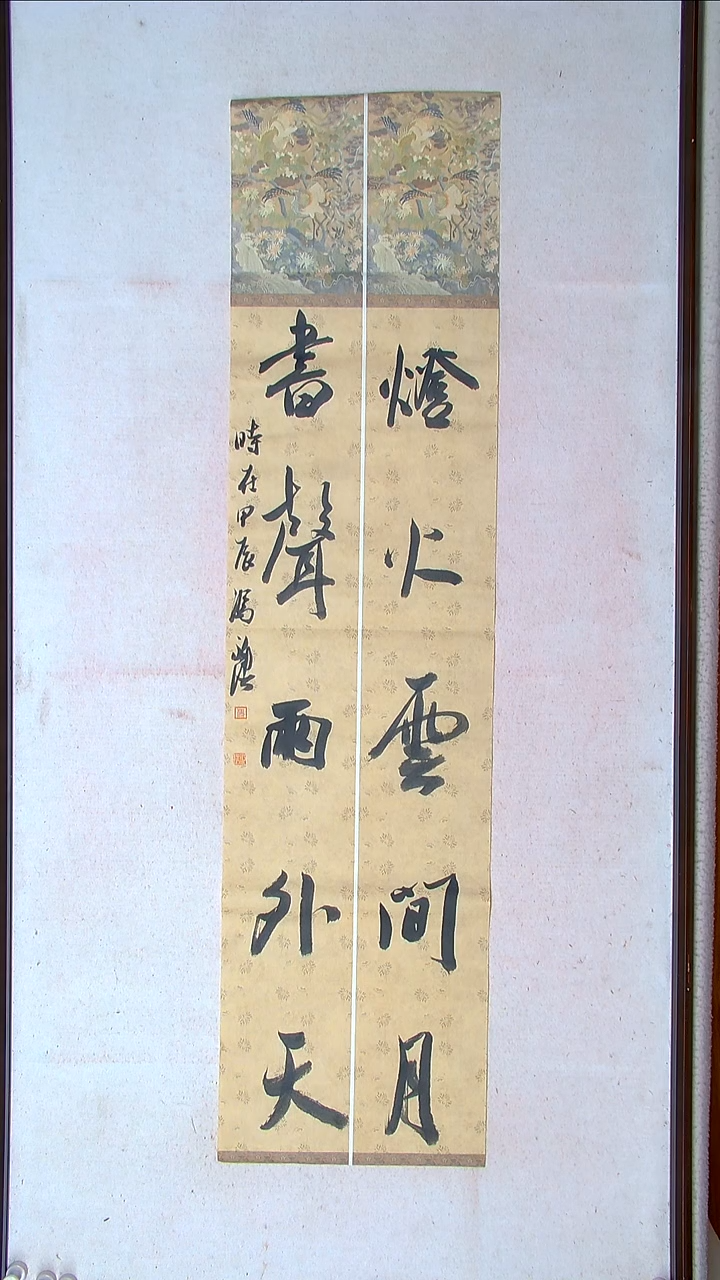 燈火雲間月
書聲雨外天
時在甲辰馮